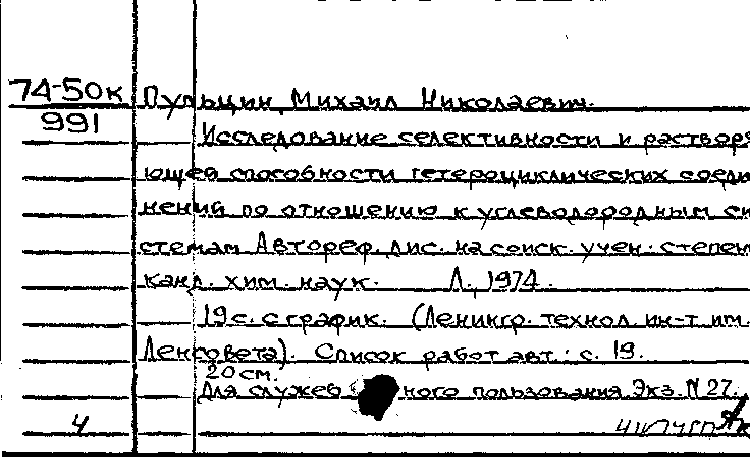 74-50к Пульцин, Михаил Николаевич.
991
Исследование селективности и растворя
ющей способности гетероциклических соеди
нений по отношению к углеводородным си
стемам Автореф. дис. на соиск. учен. степен
канд. хим. наук. Л., 1974.
19 с. с график. (Ленингр. технол. ин-т им.
Ленсовета). Список работ авт.: с. 19.
20 см.
Для служеб ного пользования. Экз. N 27.
4